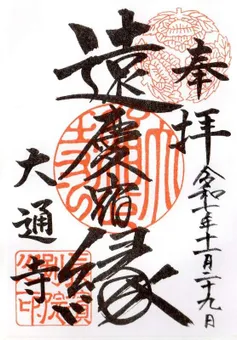 奉拝
令和元年十一月二十九日
遠慶宿縁
大通寺